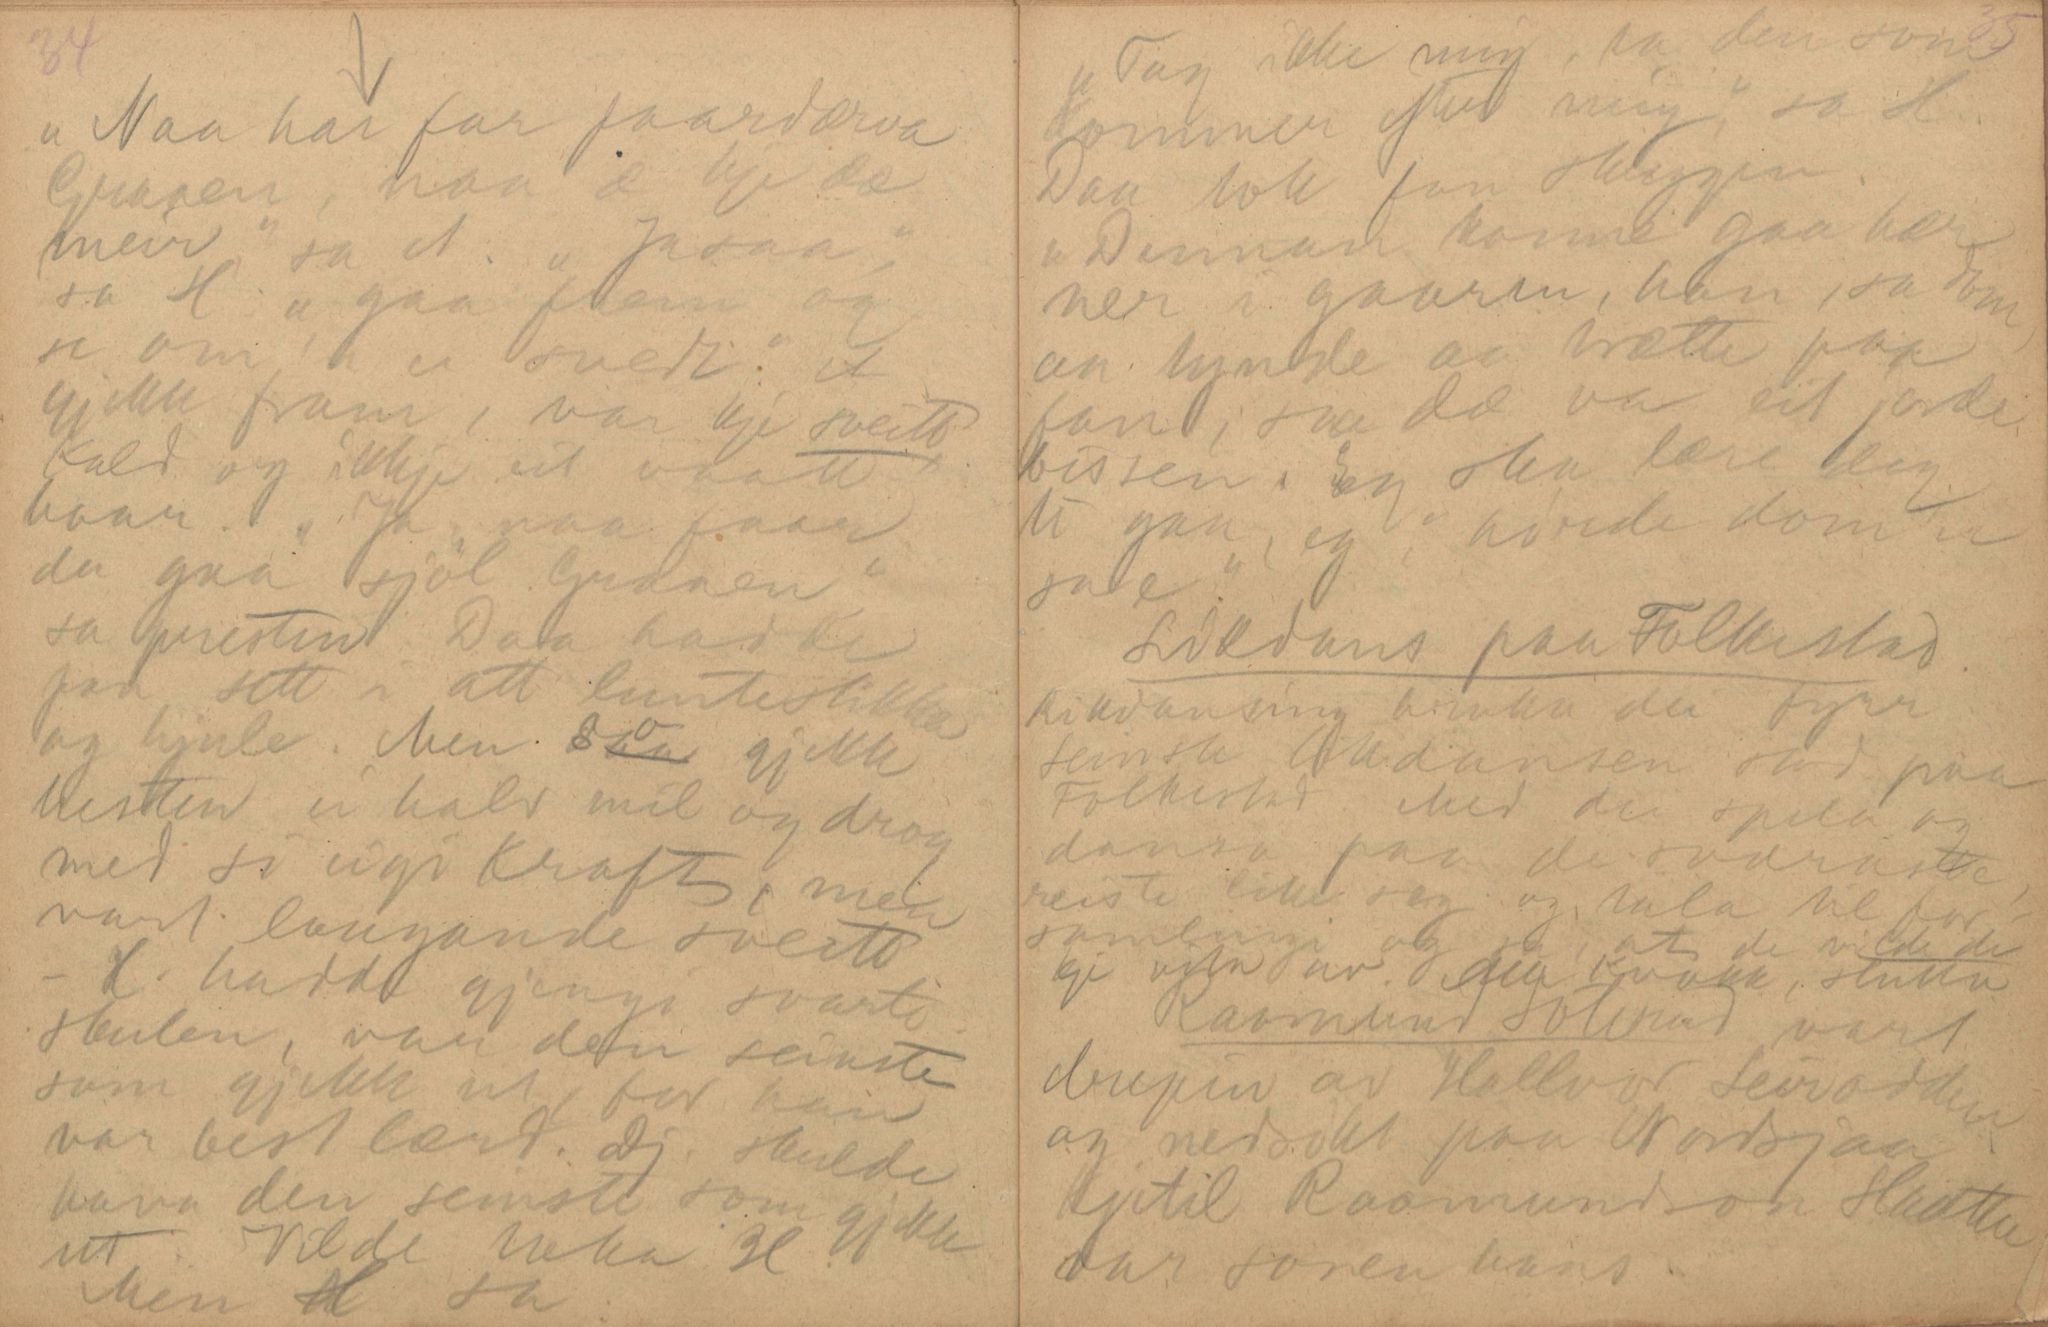 34
„ Naa har far faardærva
Graaen, naa æ kje dæ
meir," sa et. „Jasaa,"
sa H. „gaa frem og
se om 'n er svedt." et
gjekk fram, var kje sveitt
kald og ikkje eit vaatt
haar. „Ja, naa faar
du gaa sjöl Graaen"
sa presten. Daa hadde
faa sett i att luntestikka
og hjule. Men so gjekk
hesten ei halv mil og drog
med si eigi Kraft, men
vart laugande sveitt
- H. hadde gjengi svarte
skulen, var den seinste
som gjekk ut, for han
var best lærd. Dj. skulde
hava den seinste som gjekk
ut. Vilde taka H.
Men H sa
35
„Tag ikke mig, ta den som
kommer etter mig," sa H.
Daa tok fan skuggin.
„Dennan konne gaa her
ner i gaarin, han, sa dom,
aa tynde aa trætte paa
fan, saa dæ va eit jorde
bissen. Eg ska lære deig
te gaa, eg", hörde dom 'n
sae"
Likdans paa Folkestad.
Likdansing bruka dei fyrr
Seinste likdansen stod paa
Folkestad. Med dei spela og
dansa paa de sværaste,
reiste liket seg og tala til for-
samlingi og sa, at de vilde de
kje vita av. slutta
Raamund Solerud vart
drepin av Hallvor Leirodden
og nedsökt paa Nordsjaa
Kjetil Raamundson Slaatta
var sonen hans.